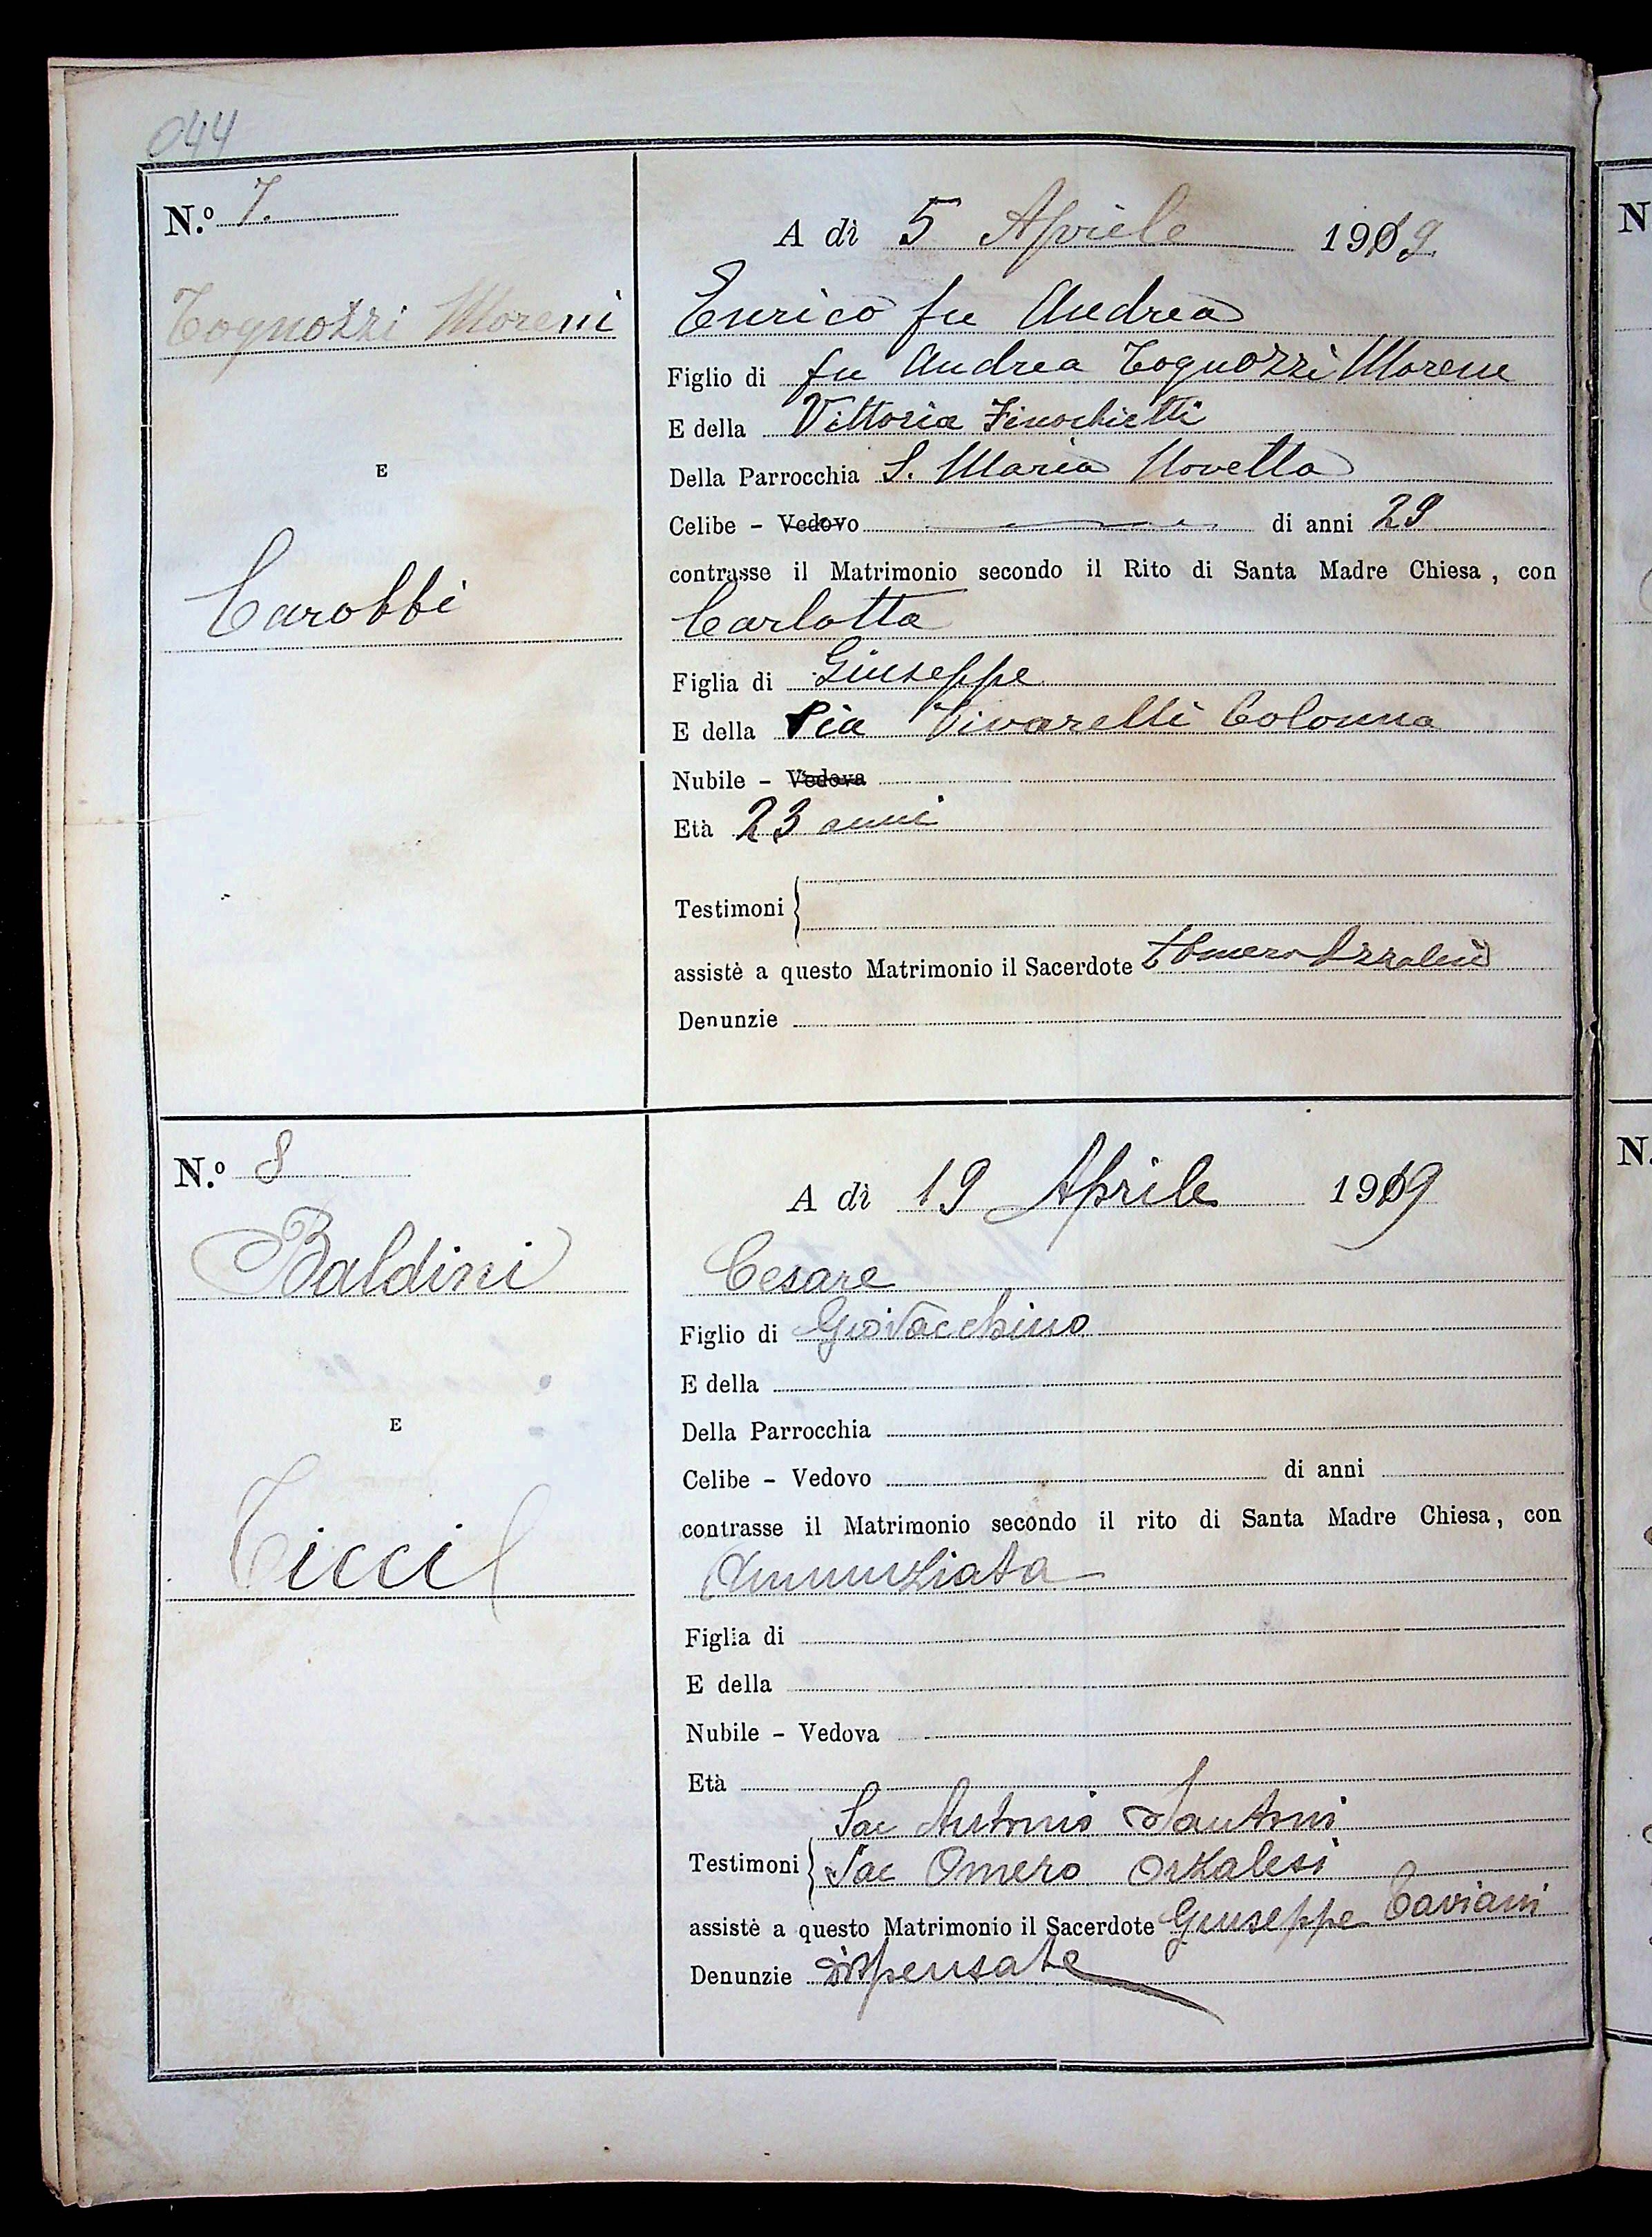 044
N.º 7.
A dì 5 Aprile 1919
Tognozzi Moreni
E
Carobbi
Enrico fu Andrea
Figlio di fu Andrea Tognozzi Moreni
E della Vittoria Finochietti
Della Parrocchia S. Maria Novella
Celibe - Vedovo di anni 29
contrasse il Matrimonio secondo il Rito di Santa Madre Chiesa, con
Carlotta
Figlia di Giuseppe
E della Pia Vivarelli Colonna
Nubile - Vedova
Età 23 anni
Testimoni
assistè a questo Matrimonio il Sacerdote Omero
Denunzie
N.º 8
A dì 19 Aprile 1919
Baldini
E
Ticci
Cesare
Figlio di Giovacchino
E della
Della Parrocchia
Celibe - Vedovo di anni
contrasse il Matrimonio secondo il rito di Santa Madre Chiesa, con
Annunziata
Figlia di
E della
Nubile - Vedova
Età
Sac Antonio Santoni
Testimoni Sac Omero Orzalesi
assistè a questo Matrimonio il Sacerdote Giuseppe Taviani
Denunzie dispensate
N
N.